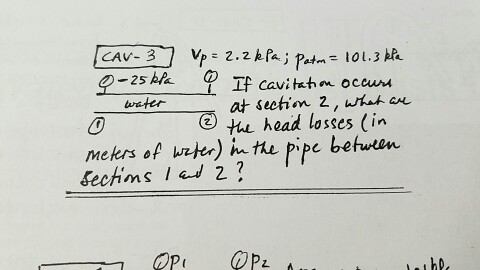 CAV-3 Vp = 2.2 kPa ; patm = 101.3 kPa
-25 kPa If cavitation occurs
water at section 2, what are
1 2 the head losses (in
meters of water) in the pipe between
sections 1 and 2 ?
P1 P2